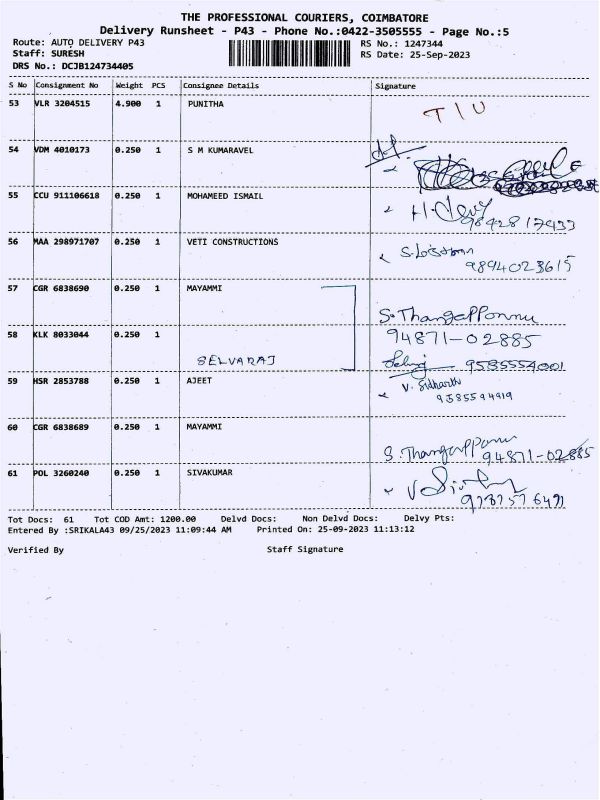 THE PROFESSIONAL COURIERS, COIMBATORE
Delivery Runsheet - P43 - Phone No.:0422-3505555 - Page No.:5
Route: AUTO DELIVERY P43 RS No.: 1247344
Staff: SURESH RS Date: 25-Sep-2023
DRS No.: DCJB124734405
S No Consignment No Weight PCS Consignee Details Signature
53 VLR 3204515 4.900 1 PUNITHA T/U
54 VDM 4010173 0.250 1 S M KUMARAVEL
55 CCU 911106618 0.250 1 MOHAMEED ISMAIL
9842817933
56 MAA 298971707 0.250 1 VETI CONSTRUCTIONS
9894023615
57 CGR 6838690 0.250 1 MAYAMMI
S. Thangapponnu
58 KLK 8033044 0.250 1 94871-02885
SELVARAJ 9585554001
59 HSR 2853788 0.250 1 AJEET V. Sidharth
9385594919
60 CGR 6838689 0.250 1 MAYAMMI
S. Thangapponnu 94871-02885
61 POL 3260240 0.250 1 SIVAKUMAR
Tot Docs: 61 Tot COD Amt: 1200.00 Delvd Docs: Non Delvd Docs: Delvy Pts:
Entered By :SRIKALA43 09/25/2023 11:09:44 AM Printed On: 25-09-2023 11:13:12
Verified By Staff Signature